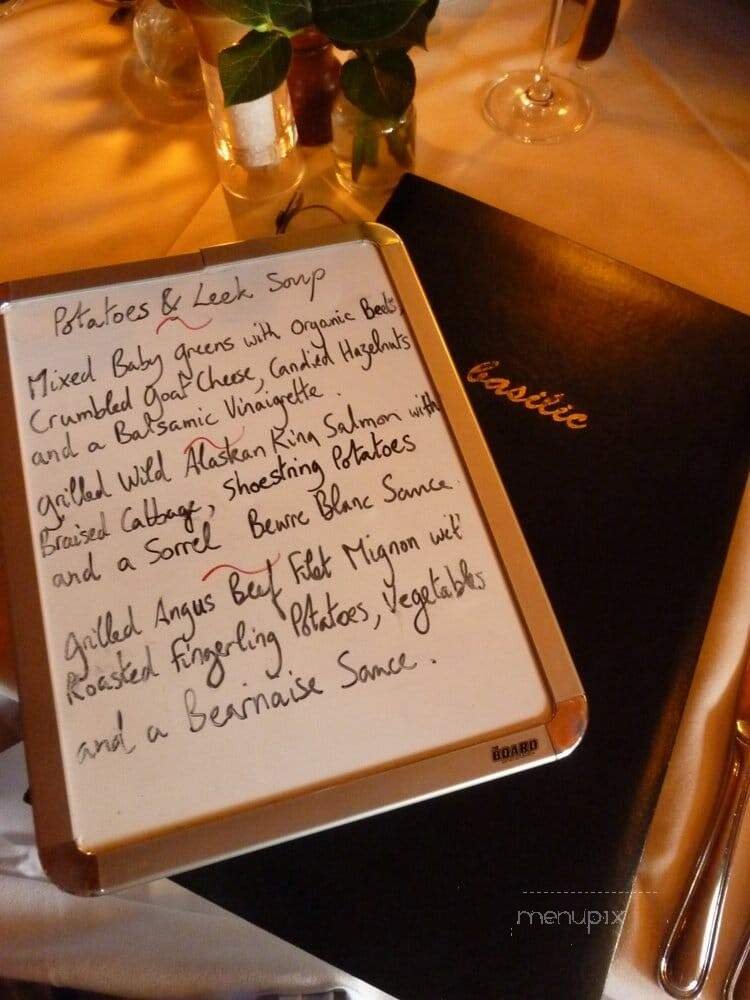 Potatoes & Leek Soup
Mixed Baby greens with Organic Beets,
Crumbled goat Cheese, Candied Hazelnuts
and a Balsamic Vinaigrette.
grilled Wild Alaskan King Salmon with
Braised Cabbage, Shoestring Potatoes
and a Sorrel Beurre Blanc Sauce.
grilled Angus Beef Filet Mignon wit'
Roasted Fingerling Potatoes, Vegetables
and a Bearnaise Sauce.
THE BOARD
basilic
menupix